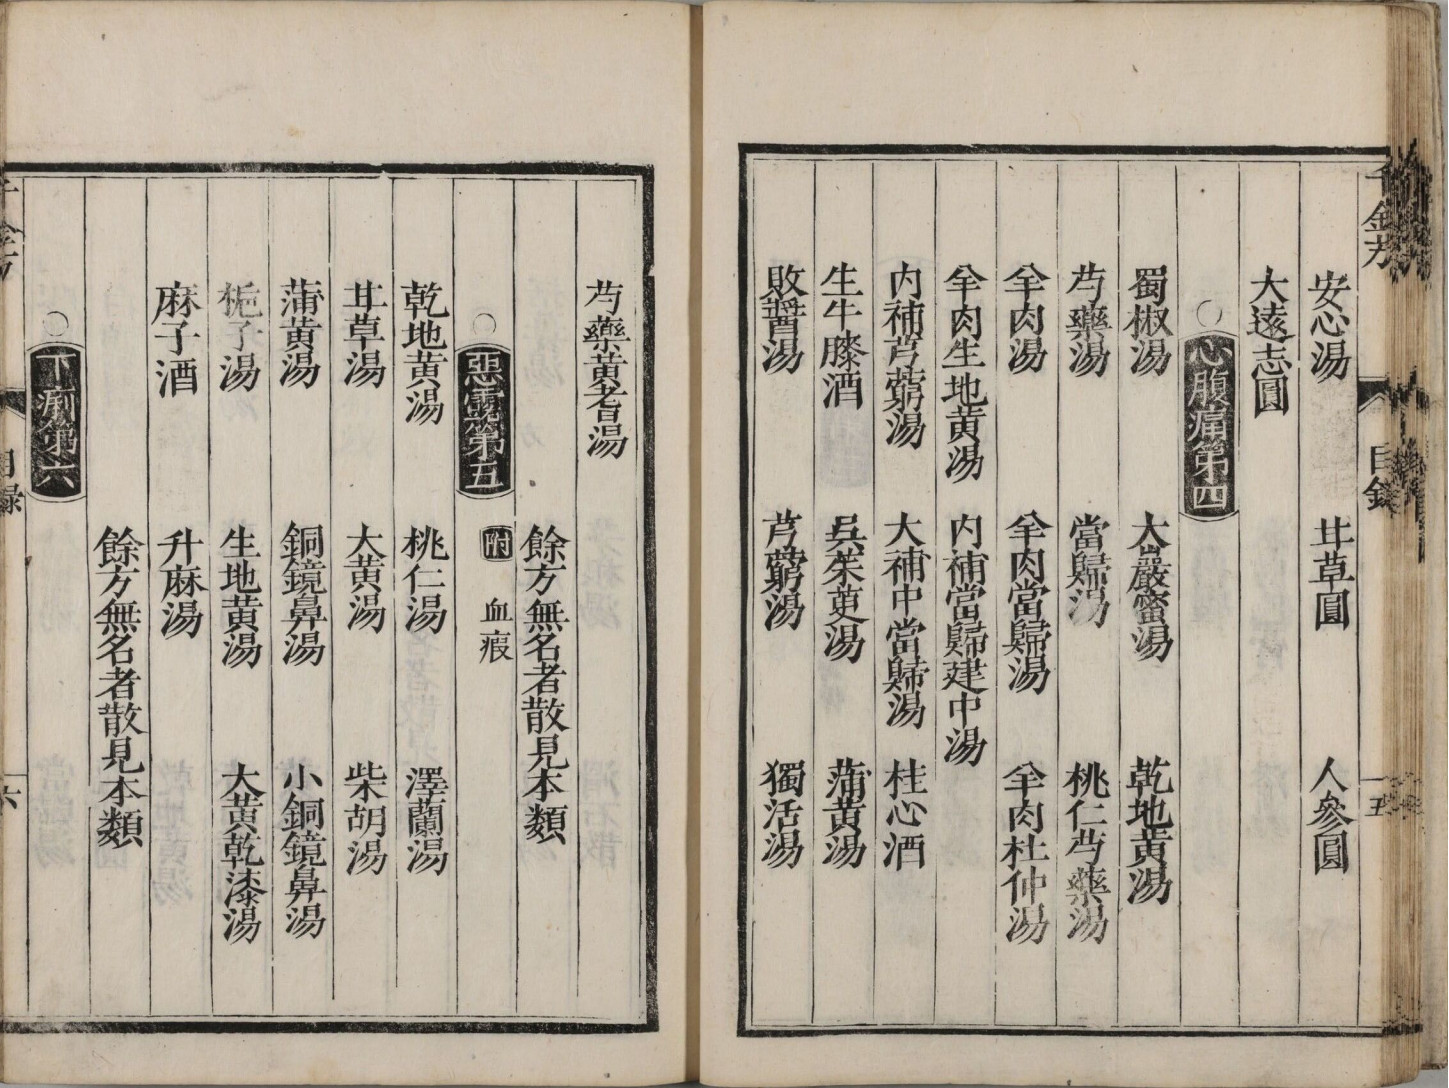 千金方 目錄 五
安心湯 甘草圓 人參圓
大遠志圓
○心腹痛第四
蜀椒湯 大巖蜜湯 乾地黃湯
芍藥湯 當歸湯 桃仁芍藥湯
羊肉湯 羊肉當歸湯 羊肉杜仲湯
羊肉生地黃湯 内補當歸建中湯
内補芎藭湯 大補中當歸湯 桂心酒
生牛膝酒 吳茱萸湯 蒲黃湯
敗醬湯 芎藭湯 獨活湯
芍藥黃耆湯
餘方無名者散見本類
○惡露第五 附 血瘕
乾地黃湯 桃仁湯 澤蘭湯
甘草湯 大黃湯 柴胡湯
蒲黃湯 銅鏡鼻湯 小銅鏡鼻湯
梔子湯 生地黃湯 大黃乾漆湯
麻子酒 升麻湯
餘方無名者散見本類
○下痢第六
千金方 目錄 六